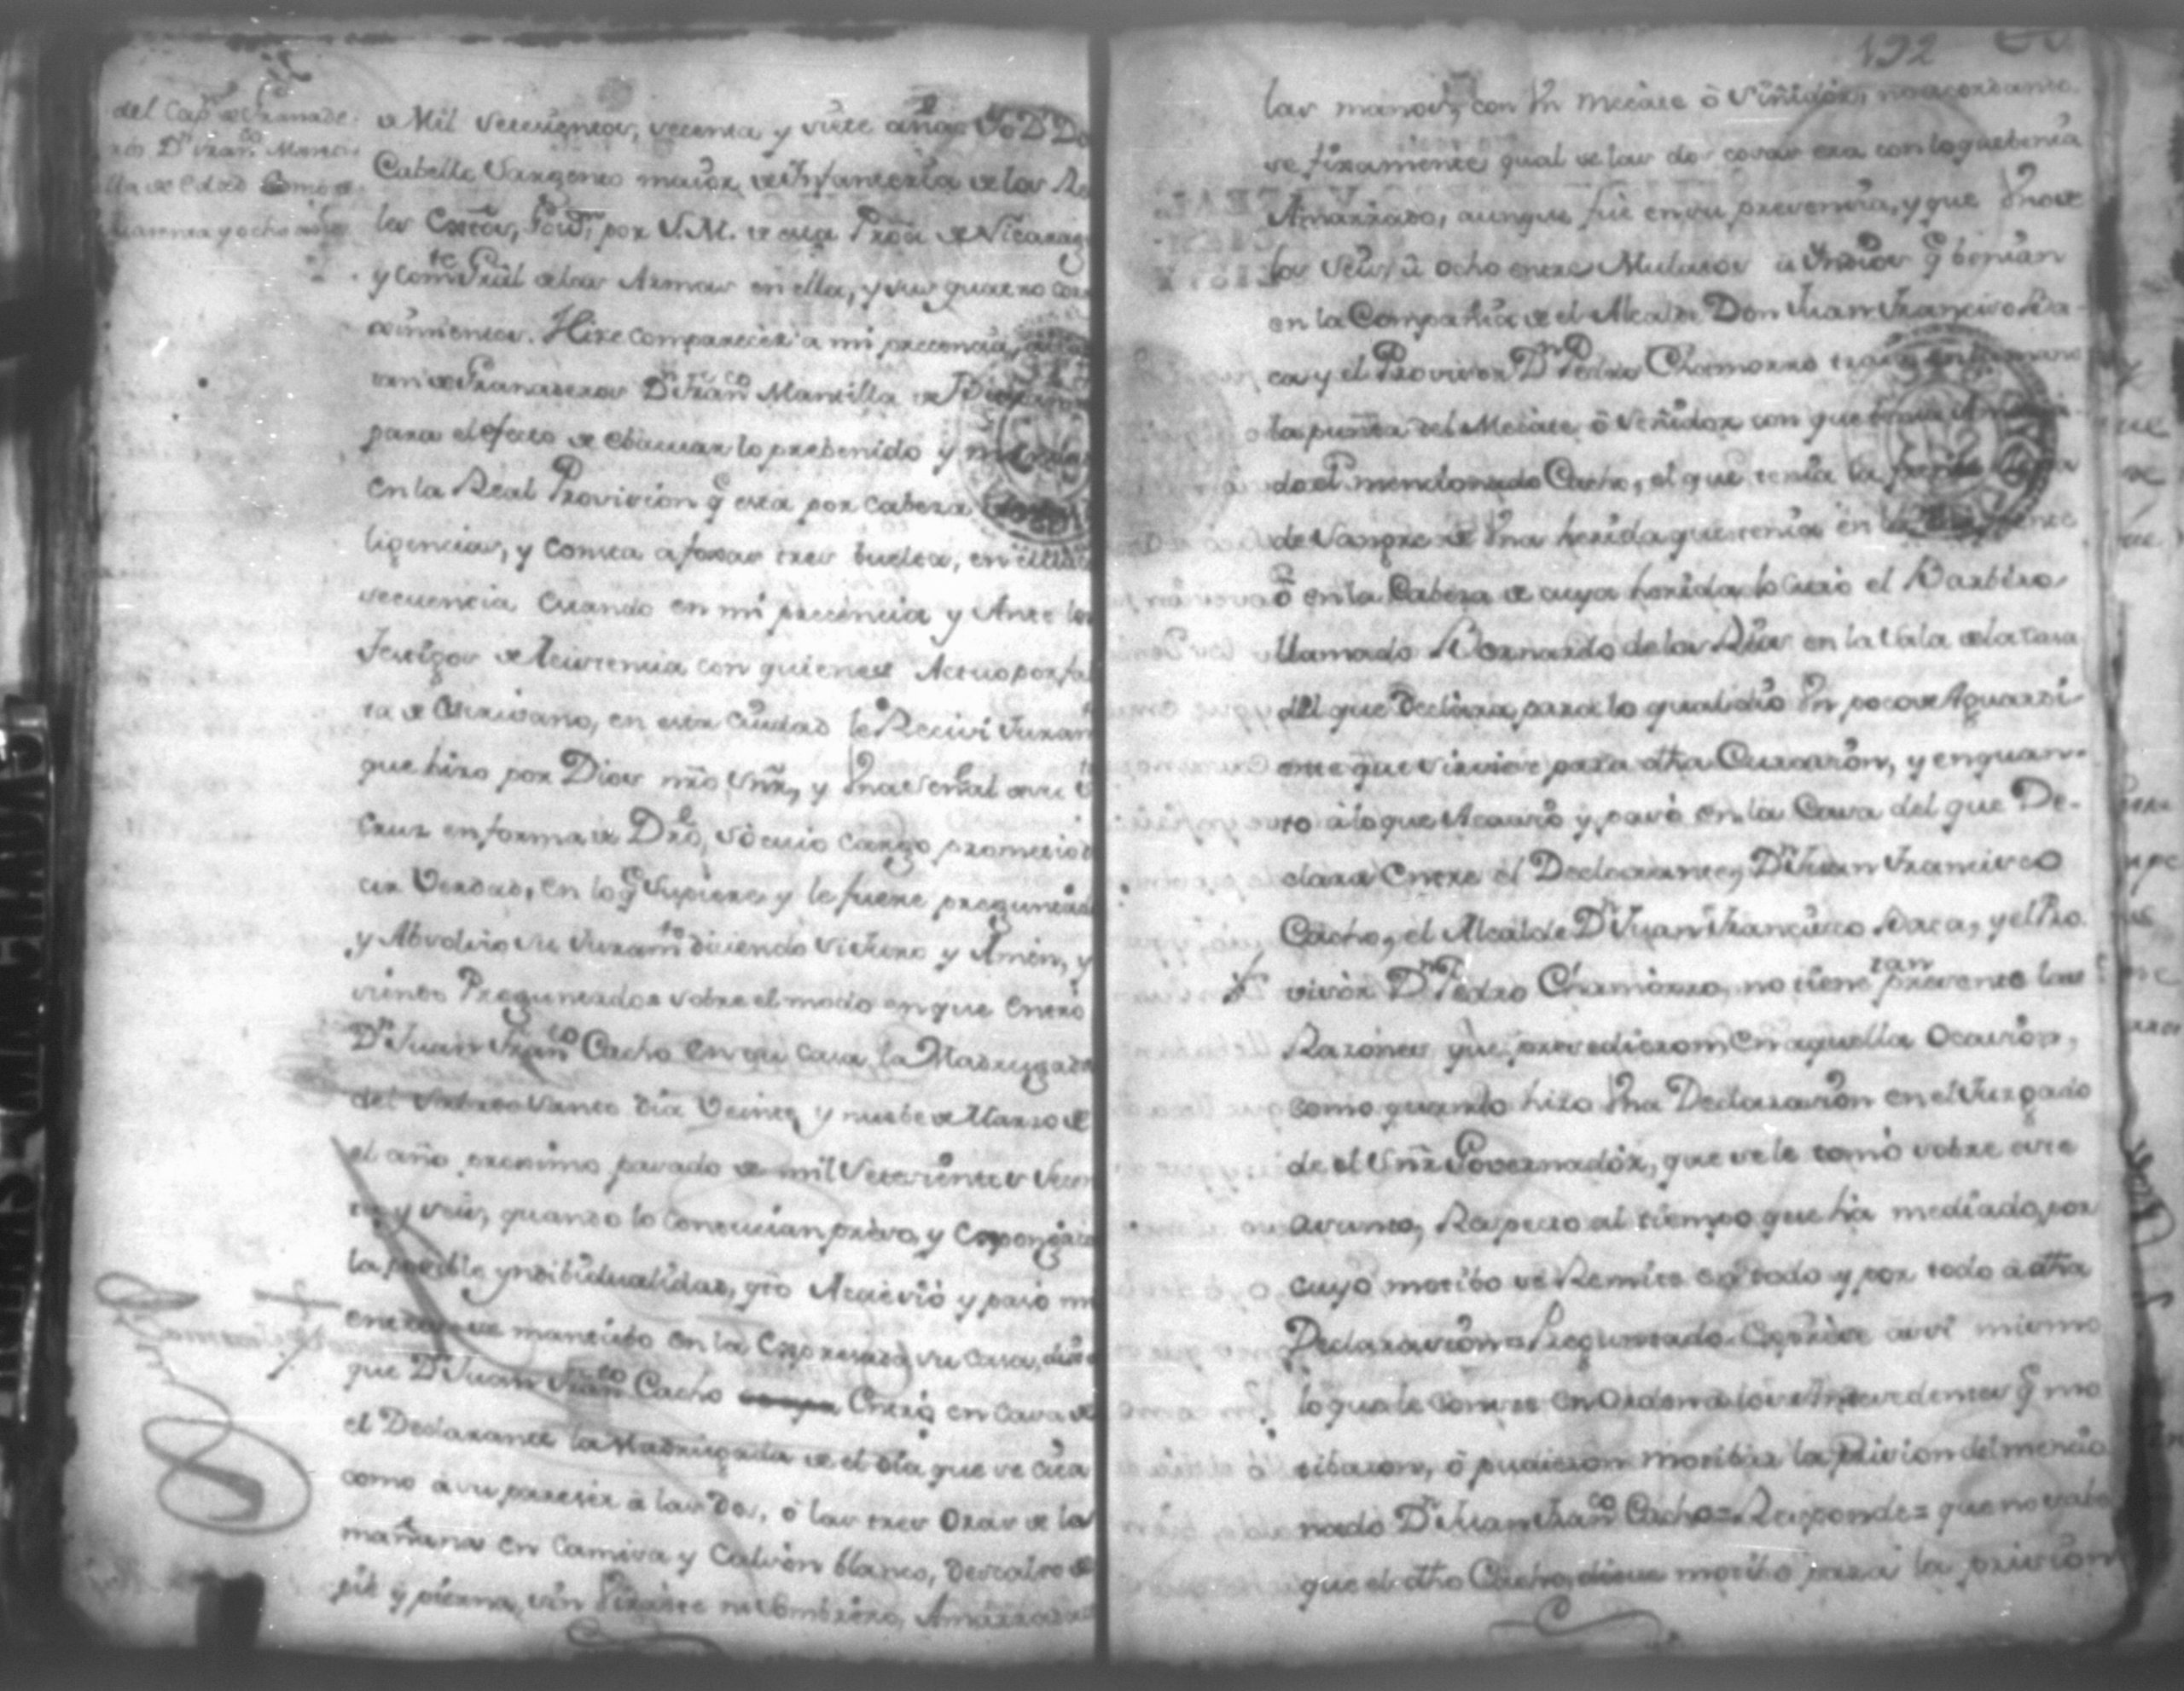 del Cap.n de Granade-
ros D.n Fran.co Manti-
lla de edad como de
quarenta y ocho años
de Mil setecientos, setenta y siete años Yo D.n Do
Cabello Sargento maior de Infanteria de los Re
les Exttos, Gov.or por S.M. de esta Prov.a de Nicarag
y Com.te Gral de las Armas en ella, y sus quatro corr
ximientos. Hize comparecer a mi precencia, al
tan de Granaderos D.n Fran.co Mantilla
para el efecto de ebacuar lo prebenido y mandado
en la Real Provicion q.e esta por cabeza
ligencias, y consta a foxas tres buelta, en
secuencia estando en mi precencia y Ante los
Testigos de Acistencia con quienes Actuo por fal
ta de Escrivano, en esta Ciudad le Recivi Juram
que hizo por Dios nrô Snr̃, y Una Señal de su
Cruz en forma de Drõ, so cuio cargo prometio
cir Verdad, en lo q.e Supiere y le fuere preguntado
y Absolvio su Juram.to diciendo si Juro y Amen, y
siendo Preguntado sobre el modo en que entró
D.n Juan Fran.co Cacho en su casa la Madrugada
del Sabado Santo dia Veinte y nuebe de Marzo de
el año proximo pasado de mil Setecientos Seten
ta, y seis, quando lo conducian preso, y Esponga con
la posible yndibidualidad, q.to Acaeció y pasó mi
entras se mantubo en la Expresada su Casa, dixo
que D.n Juan Fran.co Cacho Entró en Casa de
el Declarante la Madrugada de el dia que se cita
como a su pareser á las Dos, ó las tres Oras de la
mañana en Camisa y Calson blanco, Descalso de
pie y pierna, sin Birrete ni Sombrero, Amarradas
192
las manos, con Un Mecate ó Señidor, no acordando
se fixamente qual de las dos cosas era con lo que benia
Amarrado, aunque fue en su precencia, y que Unos
los Seis, ú ocho entre Mulatos ú Indios q.e benian
en la Compañia de el Alcalde Don Juan Francisco Va-
ca y el Provisor D.n Pedro Chamorro traia en la mano
la punta del Mecate ó Señidor con que
do el mencionado Cacho, el que tenia la frente
de Sangre de Una herida que tenia en la
ó en la Cabeza de cuya herida lo curó el Barbero
llamado Bernardo de las Rias en la Sala de la Casa
del que Declara, para lo qual dio Un poco de Aguardi
ente que sirviese para dha Curacion, y en quan-
to a lo que Acaeció y pasó en la Casa del que De-
clara Entre el Declarante, D.n Juan Francisco
Cacho, el Alcalde D.n Juan Francisco Vaca, y el Pro
visor D.n Pedro Chamorro, no tiene tan presente las
Razones que precedieron en aquella Ocacion,
como quando hizo Una Declaracion en el Juzgado
de el Snr̃ Governador, que se le tomó sobre este
asumto, Respecto al tiempo que ha mediado, por
cuyo motibo se Remite en todo y por todo a dha
Declaracion = Preguntado Exprese assi mismo
lo que le conste en Orden a los Antecedentes q.e mo
tibaron, ó pudieron motibar la Pricion del mencio
nado D.n Juan Fran.co Cacho = Responde = que no sabe
que el dho Cacho, diese motibo para la pricion